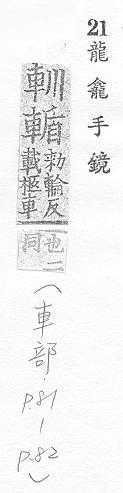 21 龍龕手鏡
輴
勑輪反
載柩車
也二
同
(車部. p.81-p.82)